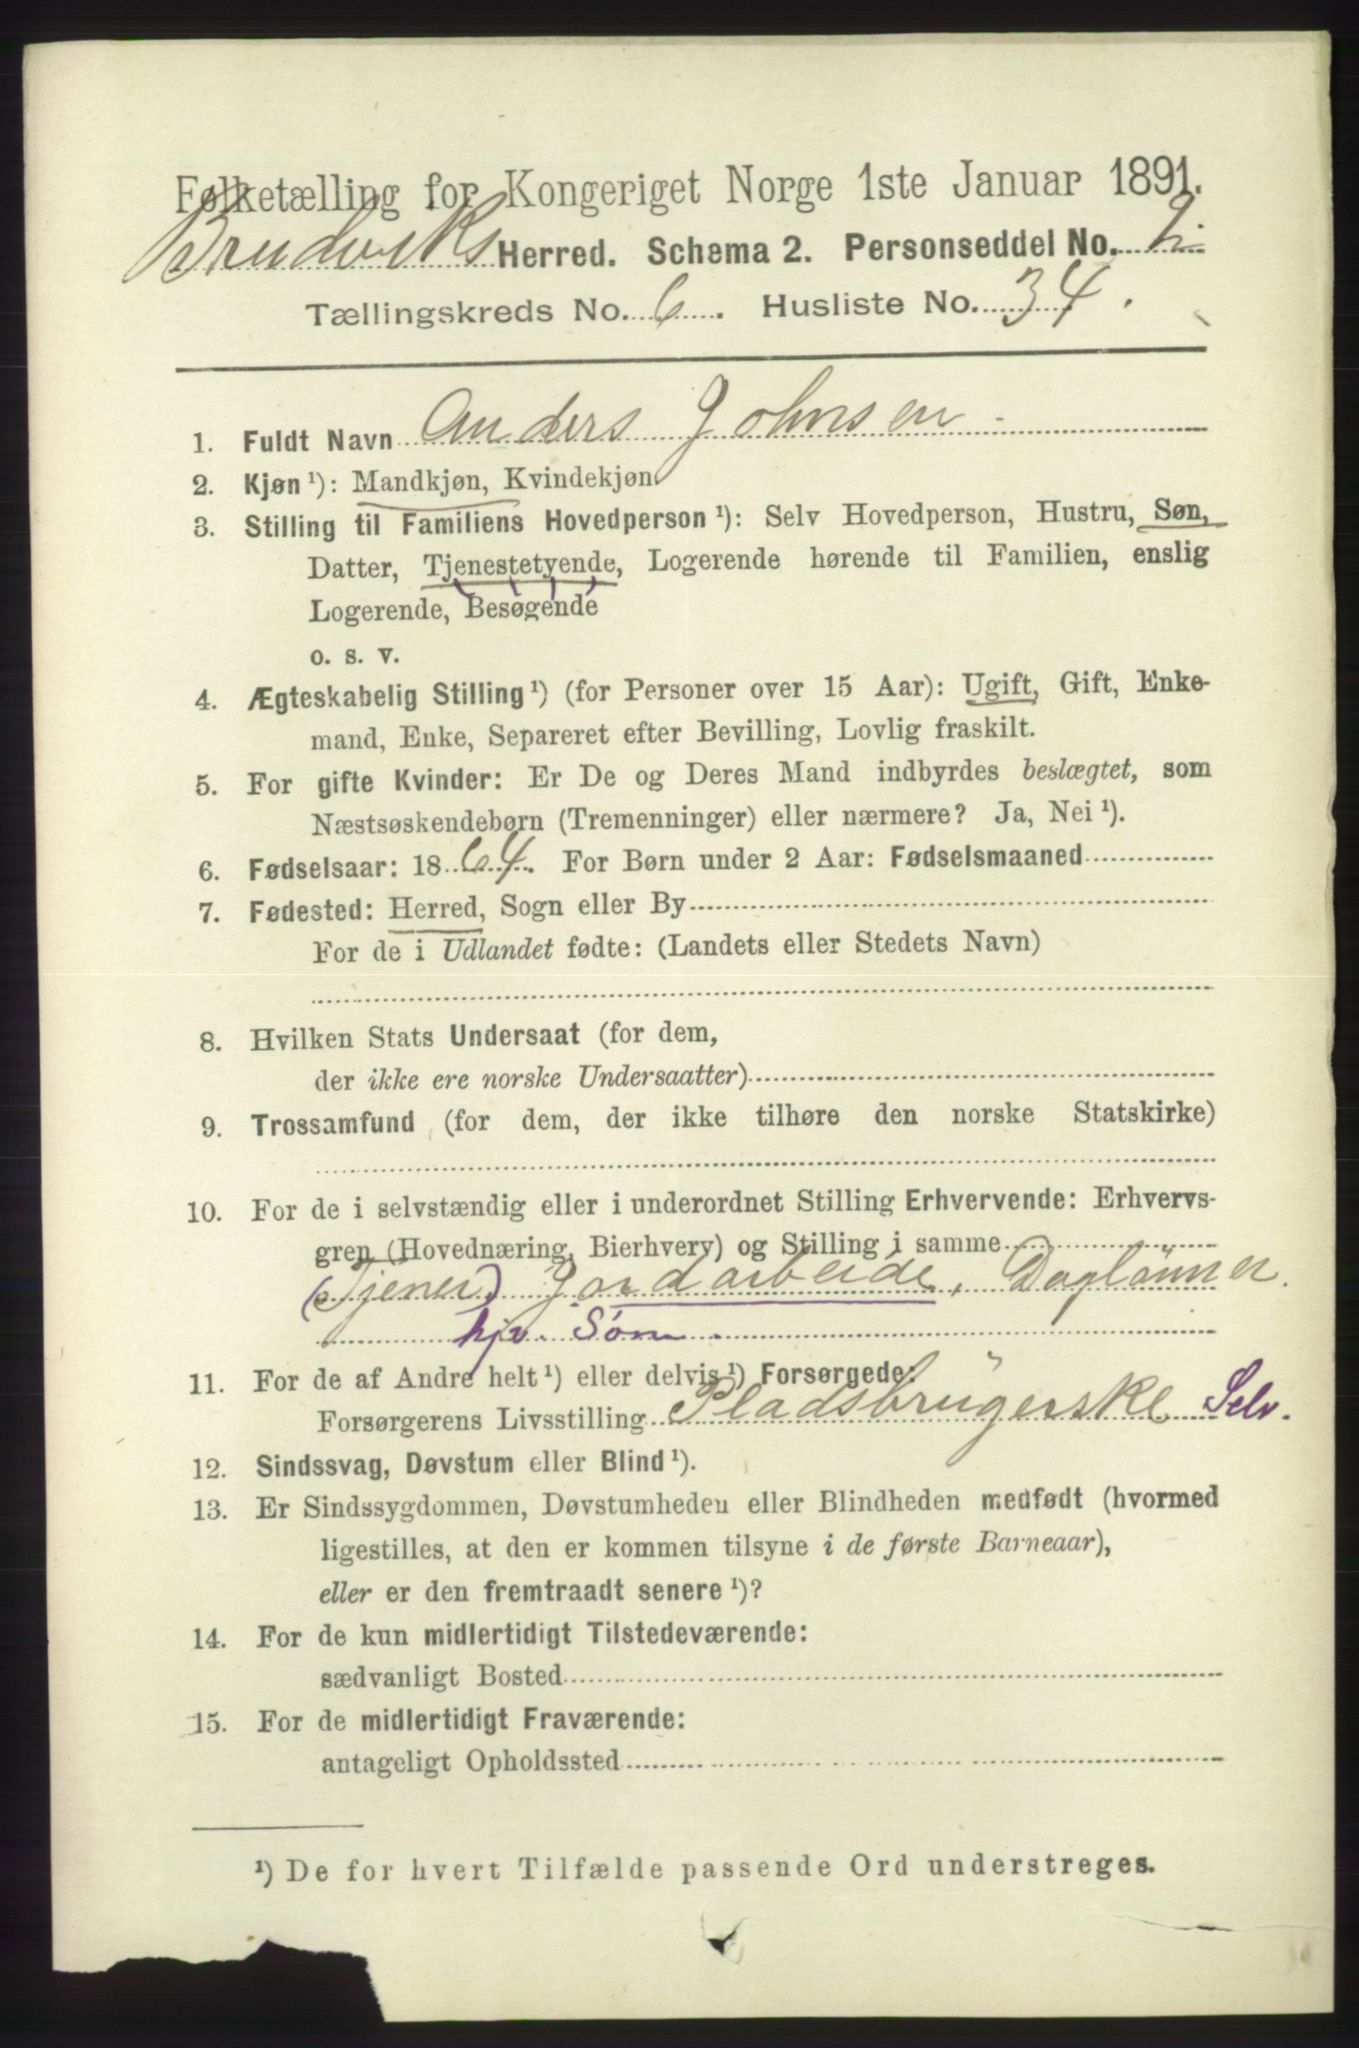 Folketælling for Kongeriget Norge 1ste Januar 1891.
Bruvik Herred. Schema 2. Personseddel No. 2.
Tællingskreds No. 6. Husliste No. 34.
1. Fuldt Navn Anders Johnsen
2. Kjøn ¹): Mandkjøn, Kvindekjøn
3. Stilling til Familiens Hovedperson ¹): Selv Hovedperson, Hustru, Søn,
Datter, Tjenestetyende, Logerende hørende til Familien, enslig
Logerende, Besøgende
o. s. v.
4. Ægteskabelig Stilling ¹) (for Personer over 15 Aar): Ugift, Gift, Enke-
mand, Enke, Separeret efter Bevilling, Lovlig fraskilt.
5. For gifte Kvinder: Er De og Deres Mand indbyrdes beslægtet, som
Næstsøskendebørn (Tremenninger) eller nærmere? Ja, Nei ¹).
6. Fødselsaar: 1864. For Børn under 2 Aar: Fødselsmaaned
7. Fødested: Herred, Sogn eller By
For de i Udlandet fødte: (Landets eller Stedets Navn)
8. Hvilken Stats Undersaat (for dem,
der ikke ere norske Undersaatter)
9. Trossamfund (for dem, der ikke tilhøre den norske Statskirke)
10. For de i selvstændig eller i underordnet Stilling Erhvervende: Erhvervs-
gren (Hovednæring, Bierhverv) og Stilling i samme
(Tjener) Jordarbeide, Daglønner.
hjv. Søn
11. For de af Andre helt ¹) eller delvis ¹) Forsørgede:
Forsørgerens Livsstilling Pladsbrugerske Selv.
12. Sindssvag, Døvstum eller Blind ¹).
13. Er Sindssygdommen, Døvstumheden eller Blindheden medfødt (hvormed
ligestilles, at den er kommen tilsyne i de første Barneaar),
eller er den fremtraadt senere ¹)?
14. For de kun midlertidigt Tilstedeværende:
sædvanligt Bosted
15. For de midlertidigt Fraværende:
antageligt Opholdssted
¹) De for hvert Tilfælde passende Ord understreges.